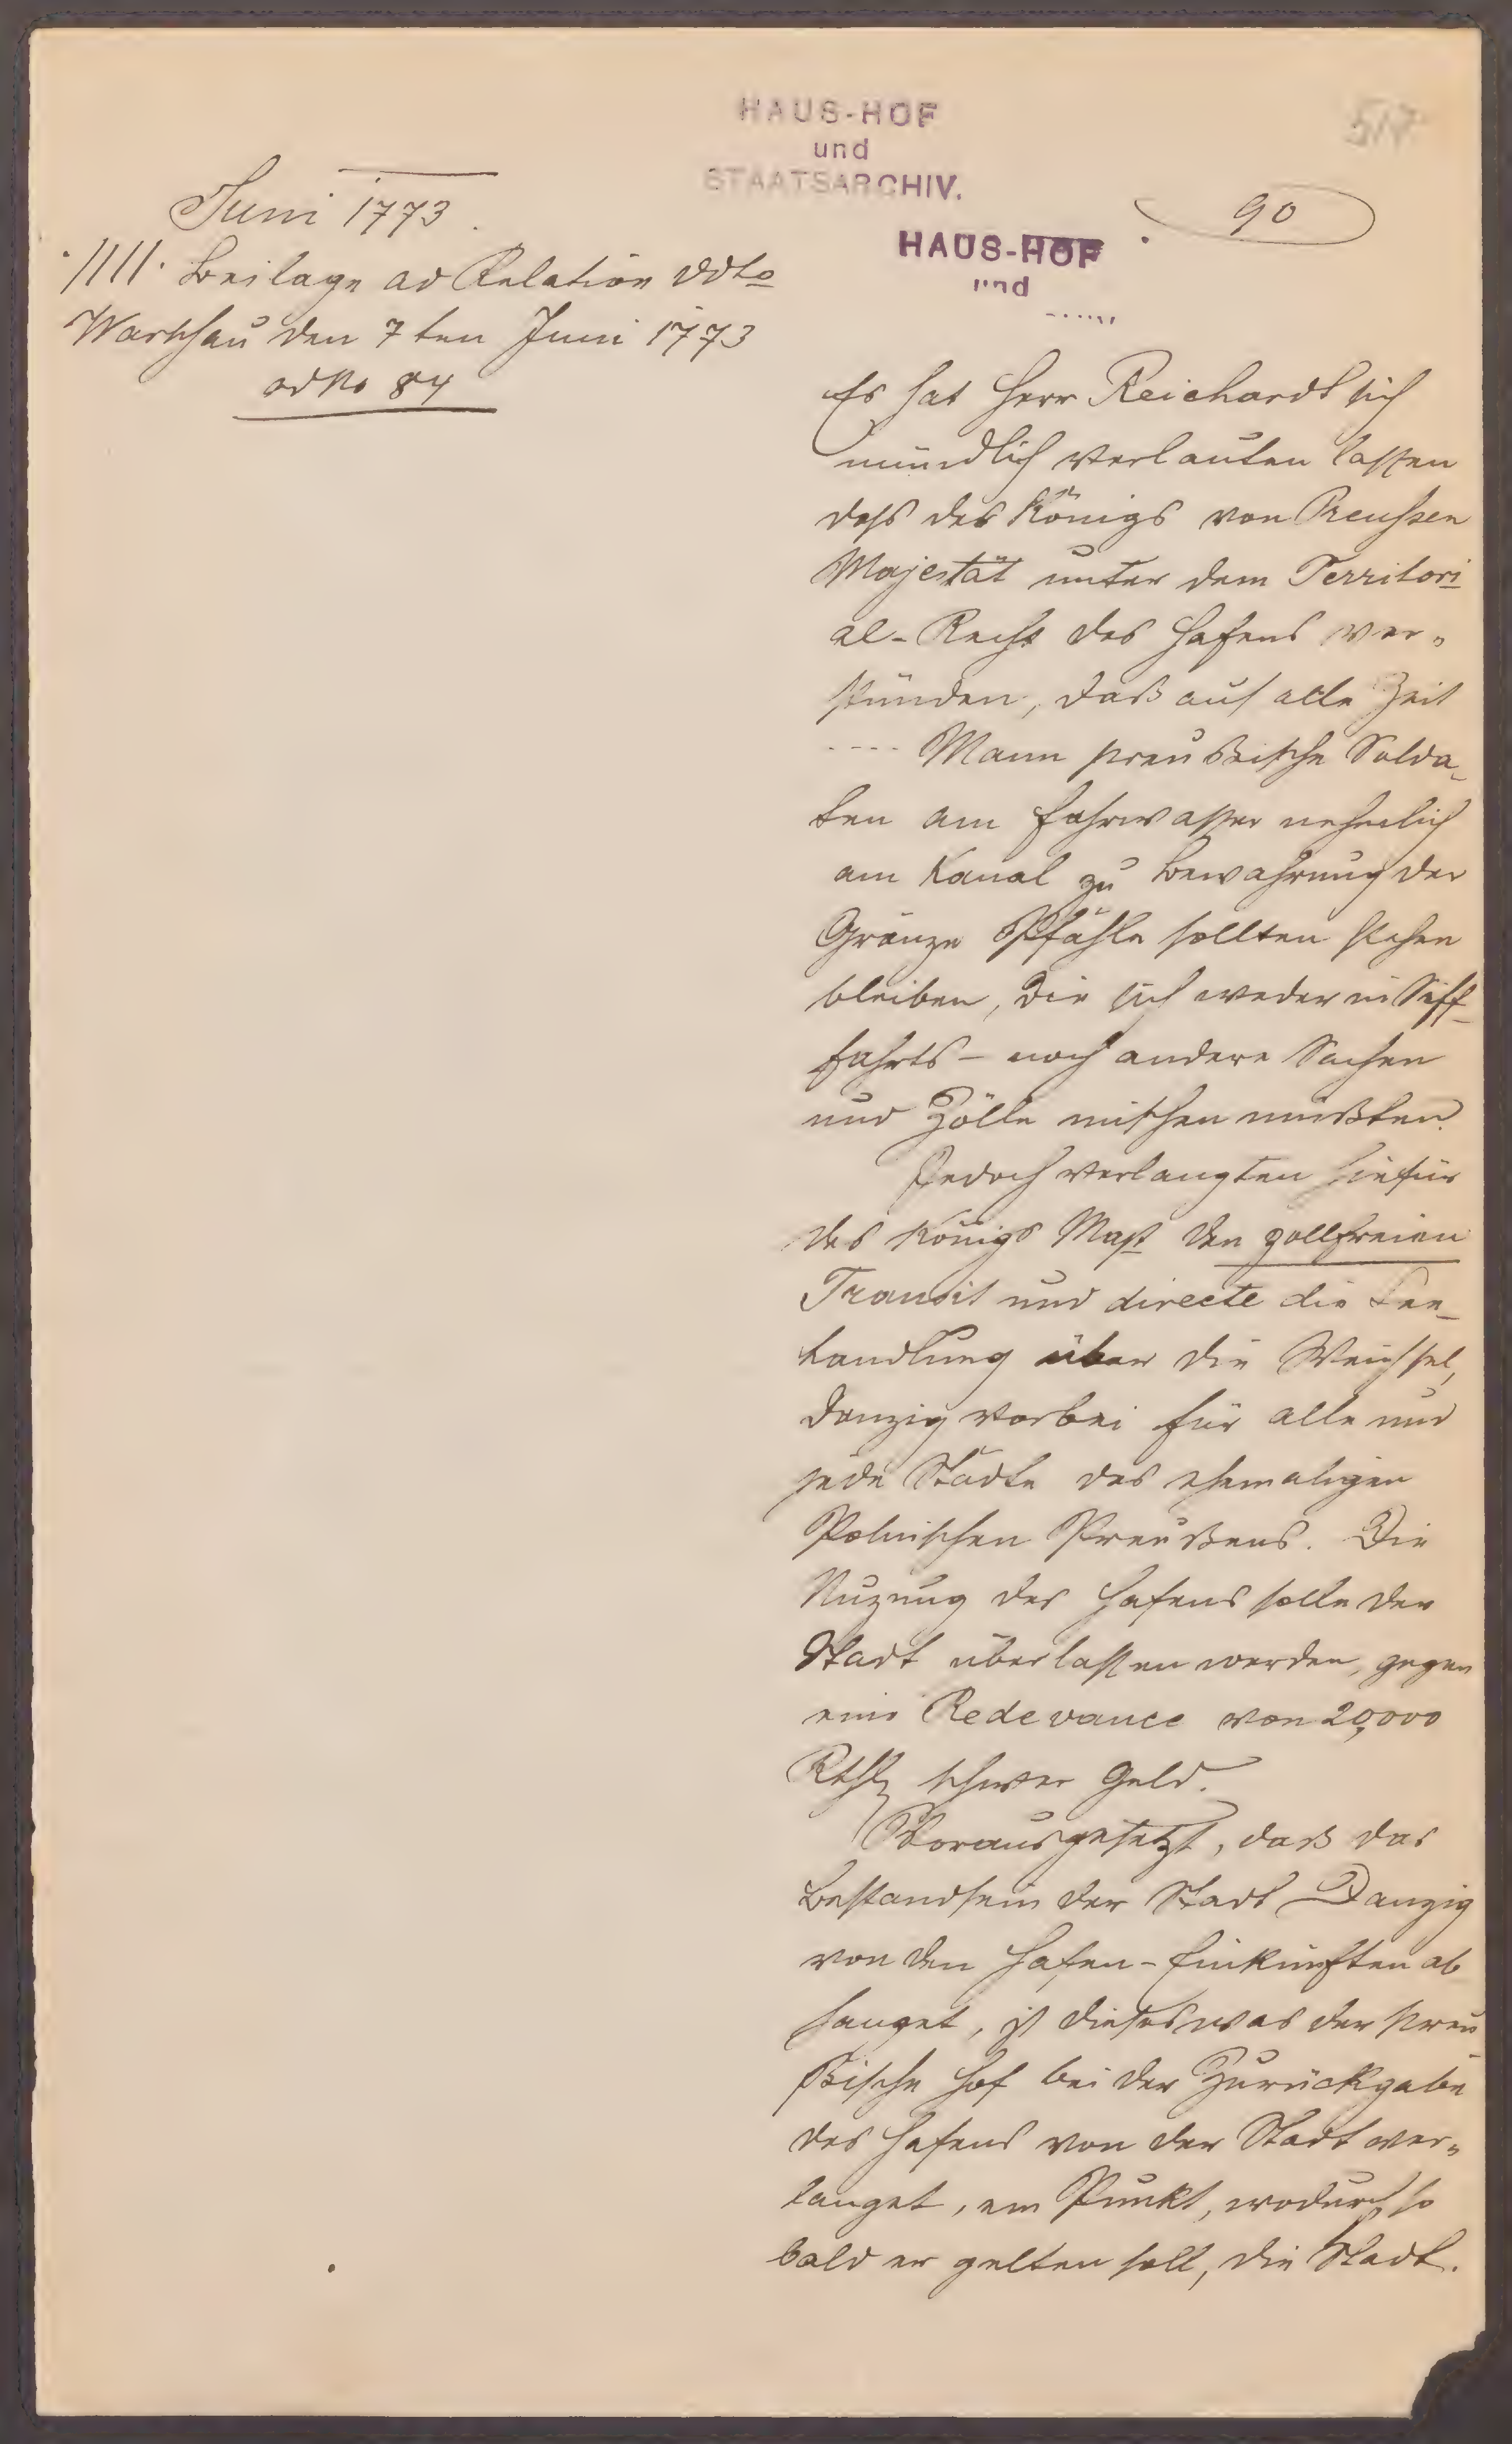 HAUS-HOF
und
STAATSARCHIV.
517
90
HAUS-HOF
und
Juni 1773.
·/IIII· Beilage ad Relation ddto
Warschau den 7ten Juni 1773
ad No 84
Es hat Herr Reichardt sich
mündlich verlauten lassen
dass des Königs von Preussen
Majestät unter dem Territori
al-Recht des Hafens ver„
stünden, daß auf alle Zeit
---- Mann preußische Solda
ten am Fahrwasser nehmlich
am Kanal zu Bewahrung der
Gränze Pfähle sollten stehen
bleiben, die sich weder in Schiff
fahrts- noch andere Sachen
und Zölle mischen müßten.
Jedoch verlangten hiefür
des Königs Mast den zollfreien
Transit und directe die See-
handlung über die Weichsel,
Danzig vorbei für alle und
jede Städte des ehemaligen
Polnischen Preußens. Die
Nuzung des Hafens solle der
Stadt überlassen werden, gegen
eine Redevance von 20,000
Rthl schwer Geld.
Vorausgesetzt, daß das
Bestandsein der Stadt Danzig
von den Hafen-Einkünften ab
hanget, ist dieses was der Preu
ßische Hof bei der Zurückgabe
des Hafens von der Stadt ver„
langet, ein Punkt, wodurch so
bald er gelten soll, die Stadt.